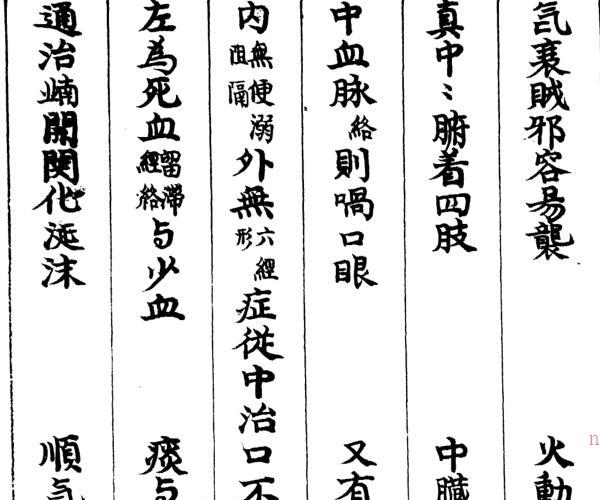 气衰賊邪容易襲 火動
真中〻腑着四肢 中臟
中血脉絡則喎口眼 又有
内無便溺阻隔外無六經形症從中治 口不
左為死血留滯經絡与少血 痰与
通治開関化涎沫 順气
n